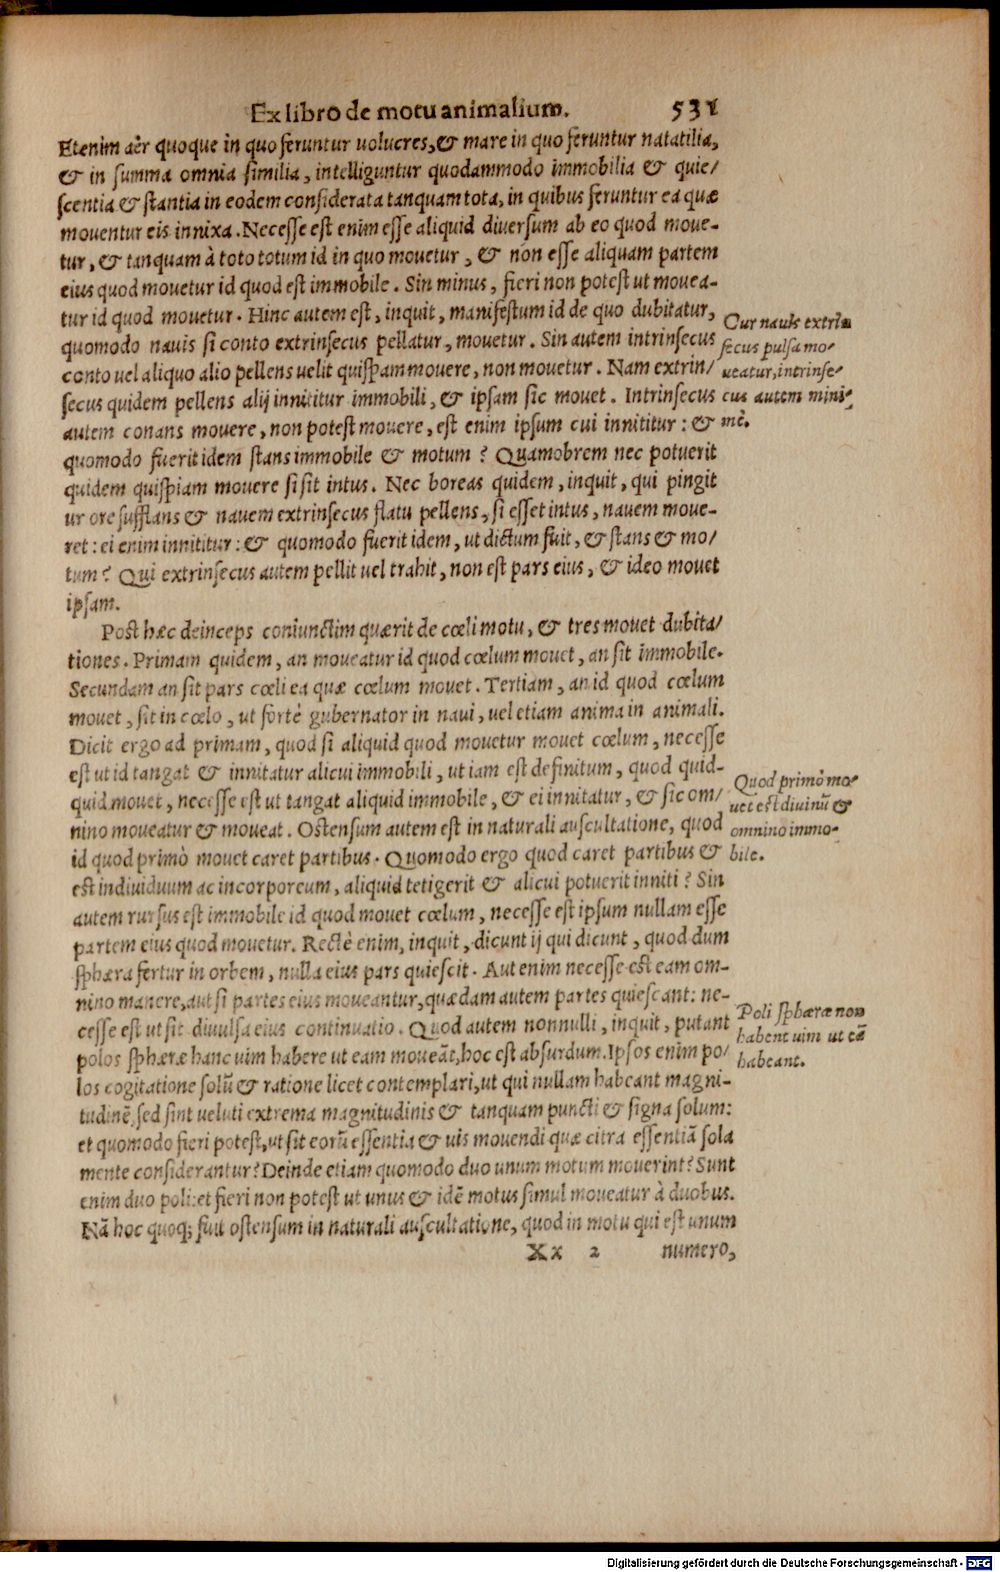 Ex libro de motu animalium. 531
Etenim aër quoque in quo feruntur uolucres, & mare in quo feruntur natatilia,
& in summa omnia similia, intelliguntur quodammodo immobilia & quie/
scentia & stantia in eodem considerata tanquam tota, in quibus feruntur ea quæ
mouentur eis innixa. Necesse est enim esse aliquid diuersum ab eo quod moue-
tur, & tanquam à toto totum id in quo mouetur, & non esse aliquam partem
eius quod mouetur id quod est immobile. Sin minus, fieri non potest ut mouea-
tur id quod mouetur. Hinc autem est, inquit, manifestum id de quo dubitatur,
quomodo nauis si conto extrinsecus pellatur, mouetur. Sin autem intrinsecus
conto uel aliquo alio pellens uelit quispam mouere, non mouetur. Nam extrin/
secus quidem pellens alij innititur immobili, & ipsam sic mouet. Intrinsecus
autem conans mouere, non potest mouere, est enim ipsum cui innititur: &
quomodo fuerit idem stans immobile & motum? Quamobrem nec potuerit
quidem quispiam mouere si sit intus. Nec boreas quidem, inquit, qui pingit
ur ore sufflans & nauem extrinsecus flatu pellens, si esset intus, nauem moue-
ret: ei enim innititur: & quomodo fuerit idem, ut dictum fuit, & stans & mo/
tum? Qui extrinsecus autem pellit uel trahit, non est pars eius, & ideo mouet
ipsam.
Cur nauis extrin
secus pulsa mo-
ueatur, intrinse-
cus autem mini-
mè.
Post hæc deinceps coniunctim quærit de cœli motu, & tres mouet dubita/
tiones. Primam quidem, an moueatur id quod cœlum mouet, an sit immobile.
Secundam an sit pars cœli ea quæ cœlum mouet. Tertiam, an id quod cœlum
mouet, sit in cœlo, ut fortè gubernator in naui, uel etiam anima in animali.
Dicit ergo ad primam, quod si aliquid quod mouetur mouet cœlum, necesse
est ut id tangat & innitatur alicui immobili, ut iam est definitum, quod quid-
quid mouet, necesse est ut tangat aliquid immobile, & ei innitatur, & sic om/
nino moueatur & moueat. Ostensum autem est in naturali auscultatione, quod
id quod primò mouet caret partibus. Quomodo ergo quod caret partibus &
est indiuiduum ac incorporeum, aliquid tetigerit & alicui potuerit inniti? Sin
autem rursus est immobile id quod mouet cœlum, necesse est ipsum nullam esse
partem eius quod mouetur. Rectè enim, inquit, dicunt ij qui dicunt, quod dum
sphæra fertur in orbem, nulla eius pars quiescit. Aut enim necesse est eam om-
nino manere, aut si partes eius moueantur, quædam autem partes quiescant: ne-
cesse est ut sit diuulsa eius continuatio. Quod autem nonnulli, inquit, putant
polos sphæræ hanc uim habere ut eam moueāt, hoc est absurdum. Ipsos enim po/
los cogitatione solū & ratione licet contemplari, ut qui nullam habeant magni-
tudinē, sed sint ueluti extrema magnitudinis & tanquam puncti & signa solum:
et quomodo fieri potest, ut sit eorū essentia & uis mouendi quæ citra essentiā sola
mente considerantur? Deinde etiam quomodo duo unum motum mouerint? Sunt
enim duo poli: et fieri non potest ut unus & idē motus simul moueatur à duobus.
Nā hoc quoq; fuit ostensum in naturali auscultatione, quod in motu qui est unum
Quod primò mo-
uet est diuinū &
omnino immo-
bile.
Poli sphæræ non
habent uim ut eā
habeant.
Xx 2 numero,
Digitalisierung gefördert durch die Deutsche Forschungsgemeinschaft - DFG